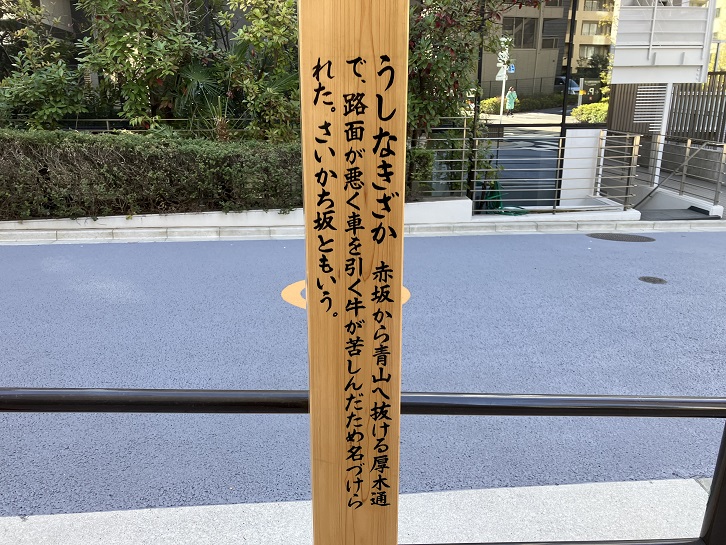 うしなきざか 赤坂から青山へ抜ける厚木通
で、路面が悪く車を引く牛が苦しんだため名づけら
れた。さいかち坂ともいう。